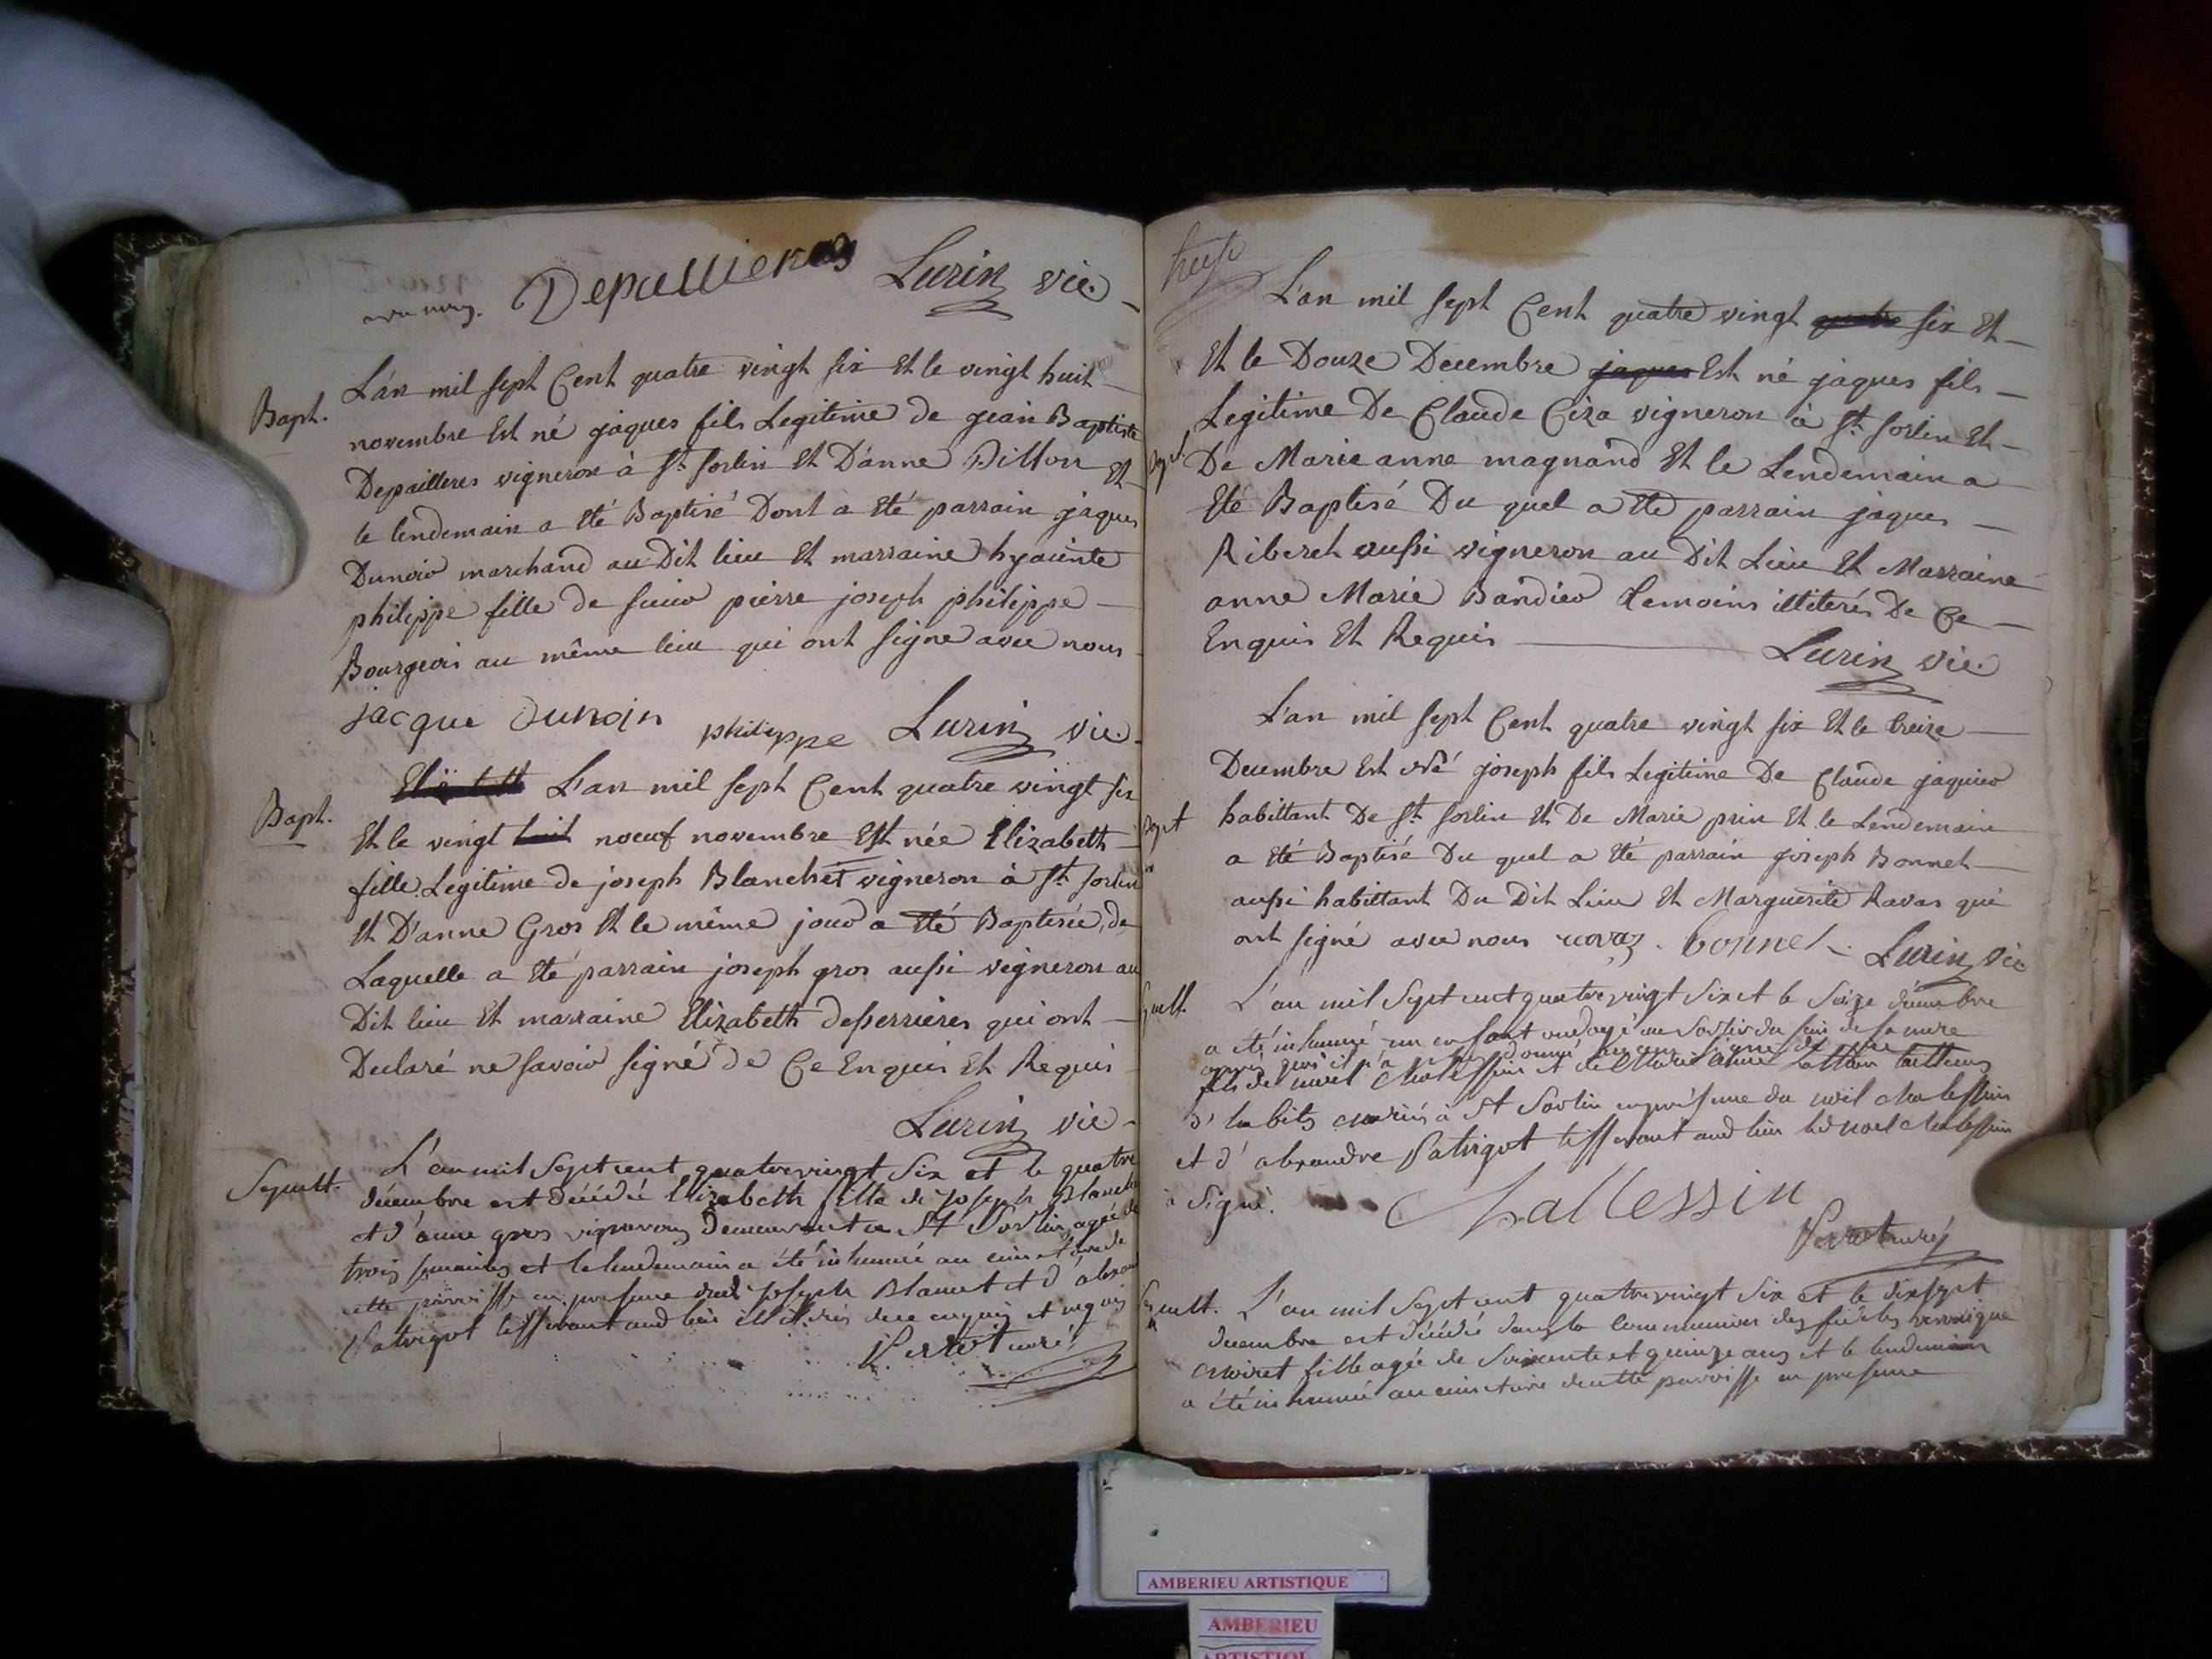 avec nous. Depallieres Lurin vic.
Bapt.
L'an mil sept Cent quatre vingt six Et le vingt huit
novembre Est né jaques fils Legitime de jean Baptiste
Depailleres vigneron à St. sorlin Et D'anne Dillon Et
le lendemain a Eté Baptisé Dont a Eté parrain jaques
Dunoir marchand au Dit lieu Et marraine hyacinte
philippe fille de sieur pierre joseph philippe
Bourgeois au même lieu qui ont signé avec nous
jacque Dunoir philippe Lurin vic.
Bapt.
L'an mil sept Cent quatre vingt six
Et le vingt huit noeuf novembre Est née Elizabeth
fille Legitime de joseph Blanchet vigneron à St. sorlin
Et D'anne Gros Et le même jour a Eté Baptisée, de
Laquelle a Eté parrain joseph gros aussi vigneron au
Dit lieu Et marraine Elizabeth desperrieres qui ont
Declaré ne savoir signé de Ce Enquis Et Requis
Lurin vic.
Sepult.
L'an mil Sept cent quatre vingt Six et le quatre
décembre est décédée Elizabeth fille de joseph Blanchet
et d'anne gros vigneron demeurant a St Sorlin agée de
trois semaines et le lendemain a été inhumée au cimetiere de
cette paroisse en presence dud. joseph Blanet et d'
Patrigot tisserant aud lieu illiterés de ce enquis et requis
Perrot curé
L'an mil sept Cent quatre vingt quatre six Et
Et le Douze Decembre jaques Est né jaques fils
Legitime De Claude Ciza vigneron à St. sorlin Et
Bapt.
De Marie anne magnand Et le Lendemain a
Eté Baptisé Du quel a Eté parrain jaques
Riberet aussi vigneron au Dit Lieu Et Marraine
anne Marie Bandier Temoins illiterés De Ce
Enquis Et Requis Lurin vic.
L'an mil sept Cent quatre vingt six Et le treize
Decembre Est né joseph fils Legitime De Claude jaquier
Bapt
habittant De St. sorlin Et De Marie prin Et le Lendemain
a Eté Baptisé Du quel a Eté parrain joseph Bonnet
aussi habittant Du Dit Lieu Et Marguerite Ravas qui
ont signé avec nous ravaz. bonnet Lurin vic
Sepult.
L'an mil Sept cent quatre vingt Six et le Seize décembre
a été inhumé un enfant ondoyé au Sortir du sein de sa mere
donné aucun signe de vie
fils de noel Chalessin et de Marie anne tailleur
d'habits à St Sorlin en présence du noël chalessin
et d'alexandre Patrigot tisserant aud lieu led noel chalessin
a Signé. Challessin
Perrot curé
Sepult.
L'an mil Sept cent quatre vingt Six et le dix sept
décembre est décédée dans la Communion des fideles veronique
fille agée de Soixante et quinze ans et le lendemain
a été inhumée au cimetiere de cette paroisse en presence
AMBERIEU ARTISTIQUE
AMBERIEU
ARTISTIQUE